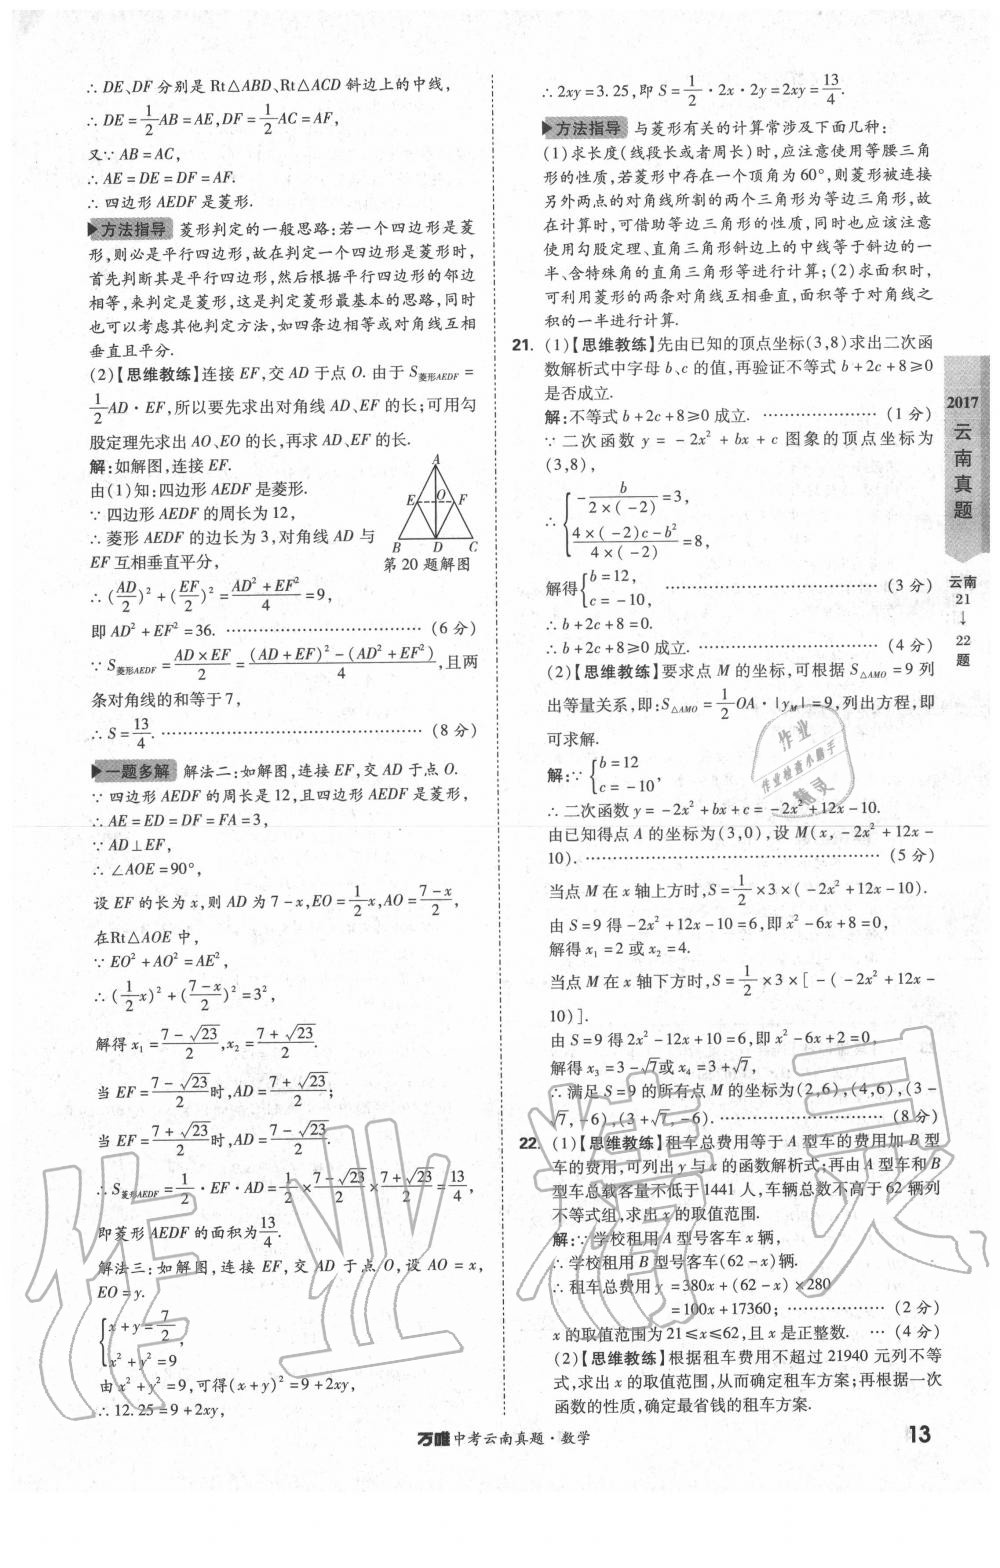 ∴ DE、DF 分别是 Rt△ABD、Rt△ACD 斜边上的中线,
∴ DE = 1/2 AB = AE, DF = 1/2 AC = AF,
又∵ AB = AC,
∴ AE = DE = DF = AF.
∴ 四边形 AEDF 是菱形.
方法指导 菱形判定的一般思路:若一个四边形是菱
形,则必是平行四边形,故在判定一个四边形是菱形时,
首先判断其是平行四边形,然后根据平行四边形的邻边
相等,来判定是菱形,这是判定菱形最基本的思路,同时
也可以考虑其他判定方法,如四条边相等或对角线互相
垂直且平分.
(2)【思维教练】连接 EF,交 AD 于点 O. 由于 S菱形AEDF =
1/2 AD · EF,所以要先求出对角线 AD、EF 的长;可用勾
股定理先求出 AO、EO 的长,再求 AD、EF 的长.
解:如解图,连接 EF.
由(1)知:四边形 AEDF 是菱形.
∵ 四边形 AEDF 的周长为 12,
∴ 菱形 AEDF 的边长为 3,对角线 AD 与
EF 互相垂直平分,
A
E O F
B D C
第 20 题解图
∴ (AD/2)² + (EF/2)² = (AD² + EF²)/4 = 9,
即 AD² + EF² = 36. ………………………… (6 分)
∵ S菱形AEDF = (AD × EF)/2 = ((AD + EF)² − (AD² + EF²))/4,且两
条对角线的和等于 7,
∴ S = 13/4. ………………………………… (8 分)
一题多解 解法二:如解图,连接 EF,交 AD 于点 O.
∵ 四边形 AEDF 的周长是 12,且四边形 AEDF 是菱形,
∴ AE = ED = DF = FA = 3,
∵ AD ⊥ EF,
∴ ∠AOE = 90°,
设 EF 的长为 x,则 AD 为 7 − x,EO = 1/2 x,AO = (7 − x)/2,
在Rt△AOE 中,
∵ EO² + AO² = AE²,
∴ (1/2 x)² + ((7 − x)/2)² = 3²,
解得 x₁ = (7 − √23)/2, x₂ = (7 + √23)/2.
当 EF = (7 − √23)/2 时,AD = (7 + √23)/2;
当 EF = (7 + √23)/2 时,AD = (7 − √23)/2.
∴ S菱形AEDF = 1/2 · EF · AD = 1/2 × (7 − √23)/2 × (7 + √23)/2 = 13/4,
即菱形 AEDF 的面积为 13/4.
解法三:如解图,连接 EF,交 AD 于点 O,设 AO = x,
EO = y.
{ x + y = 7/2 ,
x² + y² = 9
由 x² + y² = 9,可得(x + y)² = 9 + 2xy,
∴ 12.25 = 9 + 2xy,
∴ 2xy = 3.25,即 S = 1/2 · 2x · 2y = 2xy = 13/4.
方法指导 与菱形有关的计算常涉及下面几种:
(1)求长度(线段长或者周长)时,应注意使用等腰三角
形的性质,若菱形中存在一个顶角为 60°,则菱形被连接
另外两点的对角线所割的两个三角形为等边三角形,故
在计算时,可借助等边三角形的性质,同时也应该注意
使用勾股定理、直角三角形斜边上的中线等于斜边的一
半、含特殊角的直角三角形等进行计算;(2)求面积时,
可利用菱形的两条对角线互相垂直,面积等于对角线之
积的一半进行计算.
21. (1)【思维教练】先由已知的顶点坐标(3,8)求出二次函
数解析式中字母 b、c 的值,再验证不等式 b + 2c + 8 ≥ 0
是否成立.
解:不等式 b + 2c + 8 ≥ 0 成立. ……………… (1 分)
∵ 二次函数 y = − 2x² + bx + c 图象的顶点坐标为
(3,8),
∴ { − b/(2 × (−2)) = 3,
(4 × (−2)c − b²)/(4 × (−2)) = 8,
解得 { b = 12,
c = − 10, ……………………………… (3 分)
∴ b + 2c + 8 = 0.
∴ b + 2c + 8 ≥ 0 成立. ……………………… (4 分)
(2)【思维教练】要求点 M 的坐标,可根据 S△AMO = 9 列
出等量关系,即:S△AMO = 1/2 OA · |yM| = 9,列出方程,即
可求解.
解:∵ { b = 12
c = − 10,
∴ 二次函数 y = − 2x² + bx + c = − 2x² + 12x − 10.
由已知得点 A 的坐标为(3,0),设 M(x, − 2x² + 12x −
10). ……………………………………… (5 分)
当点 M 在 x 轴上方时,S = 1/2 × 3 × ( − 2x² + 12x − 10).
由 S = 9 得 − 2x² + 12x − 10 = 6,即 x² − 6x + 8 = 0,
解得 x₁ = 2 或 x₂ = 4.
当点 M 在 x 轴下方时,S = 1/2 × 3 × [ − ( − 2x² + 12x −
10)].
由 S = 9 得 2x² − 12x + 10 = 6,即 x² − 6x + 2 = 0,
解得 x₃ = 3 − √7 或 x₄ = 3 + √7,
∴ 满足 S = 9 的所有点 M 的坐标为(2,6),(4,6),(3 −
√7, − 6),(3 + √7, − 6). …………………… (8 分)
22. (1)【思维教练】租车总费用等于 A 型车的费用加 B 型
车的费用,可列出 y 与 x 的函数解析式;再由 A 型车和 B
型车总载客量不低于 1441 人,车辆总数不高于 62 辆列
不等式组,求出 x 的取值范围.
解:∵ 学校租用 A 型号客车 x 辆,
∴ 学校租用 B 型号客车(62 − x)辆.
∴ 租车总费用 y = 380x + (62 − x) × 280
= 100x + 17360; ……………… (2 分)
x 的取值范围为 21 ≤ x ≤ 62,且 x 是正整数. … (4 分)
(2)【思维教练】根据租车费用不超过 21940 元列不等
式,求出 x 的取值范围,从而确定租车方案;再根据一次
函数的性质,确定最省钱的租车方案.
2017
云
南
真
题
云南
21
↓
22
题
万唯中考云南真题·数学
13
作业
作业检查小助手
精灵
作业精灵